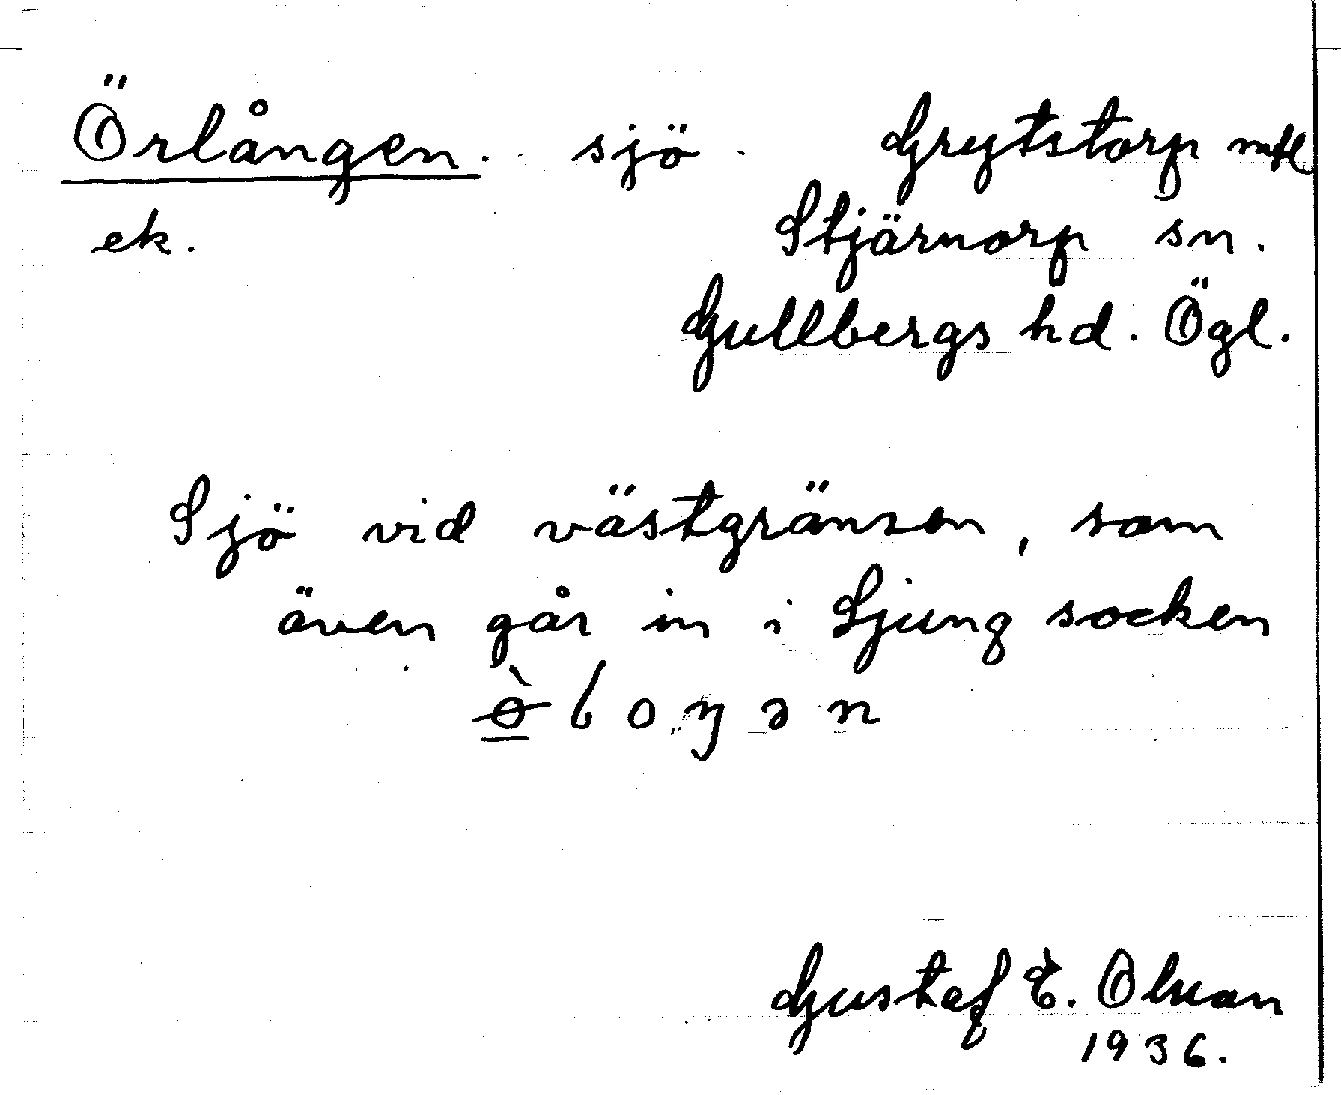 Örlången. sjö. Grytstorp mfl
ek. Stjärnorp sn.
Gullbergs hd. Ögl.
Sjö vid västgränsen, som
även går in i Ljung socken
Gustaf E. Olsson
1936.